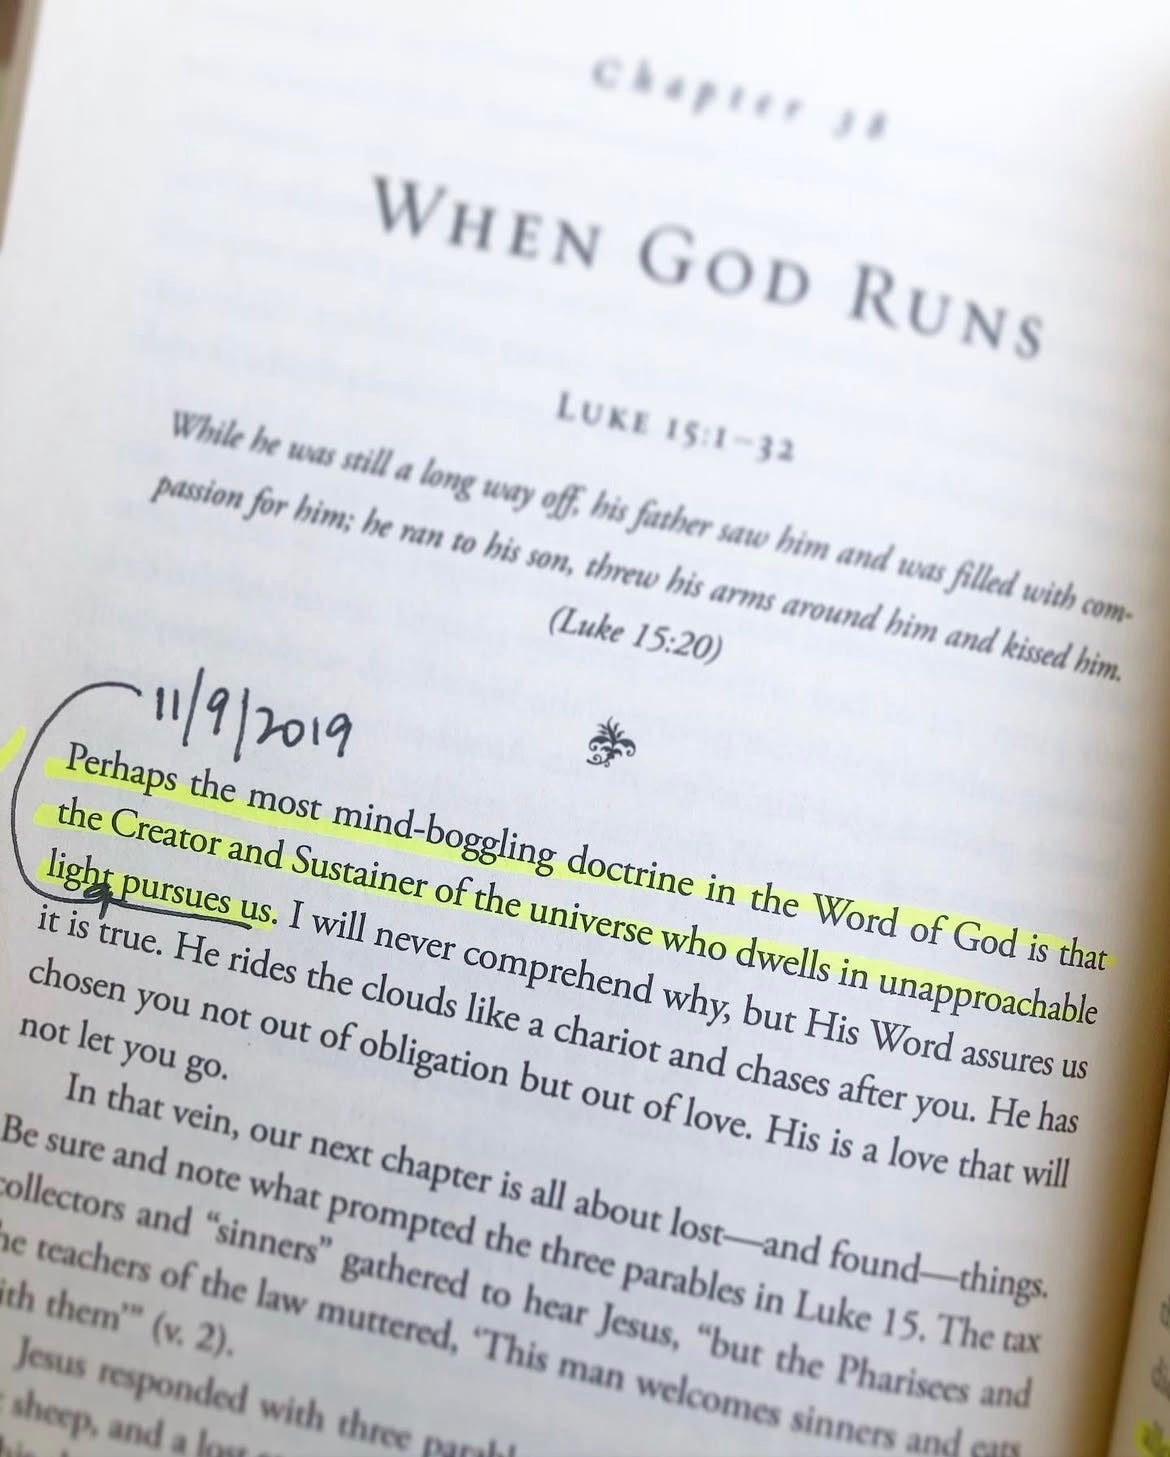 Chapter 38
WHEN GOD RUNS
LUKE 15:1–32
While he was still a long way off, his father saw him and was filled with com-
passion for him; he ran to his son, threw his arms around him and kissed him.
(Luke 15:20)
11/9/2019
Perhaps the most mind-boggling doctrine in the Word of God is that
the Creator and Sustainer of the universe who dwells in unapproachable
light pursues us. I will never comprehend why, but His Word assures us
it is true. He rides the clouds like a chariot and chases after you. He has
chosen you not out of obligation but out of love. His is a love that will
not let you go.
In that vein, our next chapter is all about lost—and found—things.
Be sure and note what prompted the three parables in Luke 15. The tax
collectors and “sinners” gathered to hear Jesus, “but the Pharisees and
he teachers of the law muttered, ‘This man welcomes sinners and eats
ith them’” (v. 2).
Jesus responded with three
sheep, and a lost